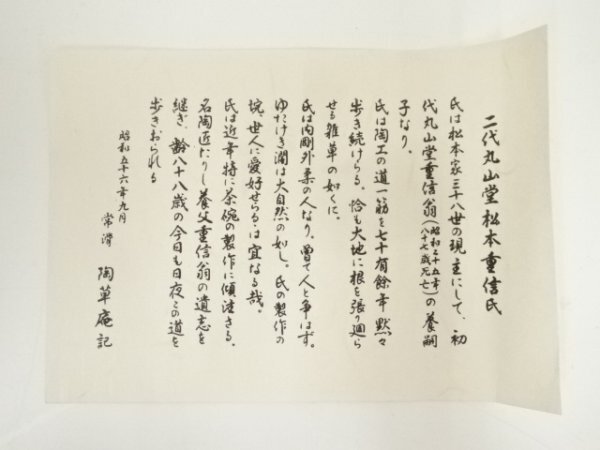 二代丸山堂松本重信氏
氏は松本家三十八世の現主にして、初
代丸山堂重信翁(昭和三十五年八十七歳死亡)の養嗣
子なり。
氏は陶工の道一筋を七十有餘年黙々
歩き続けらる、恰も大地に根を張り廻ら
せる雑草の如くに。
氏は内剛外柔の人なり。曽て人と争はず。
ゆたけき濶は大自然の如し。氏の製作の
垸、世人に愛好せらるゝは宜なる哉。
氏は近年特に茶碗の製作に傾注さる。
名陶匠たりし養父重信翁の遺志を
継ぎ、齢八十八歳の今日も日夜この道を
歩きおられる
昭和五十六年九月
常滑 陶草庵記